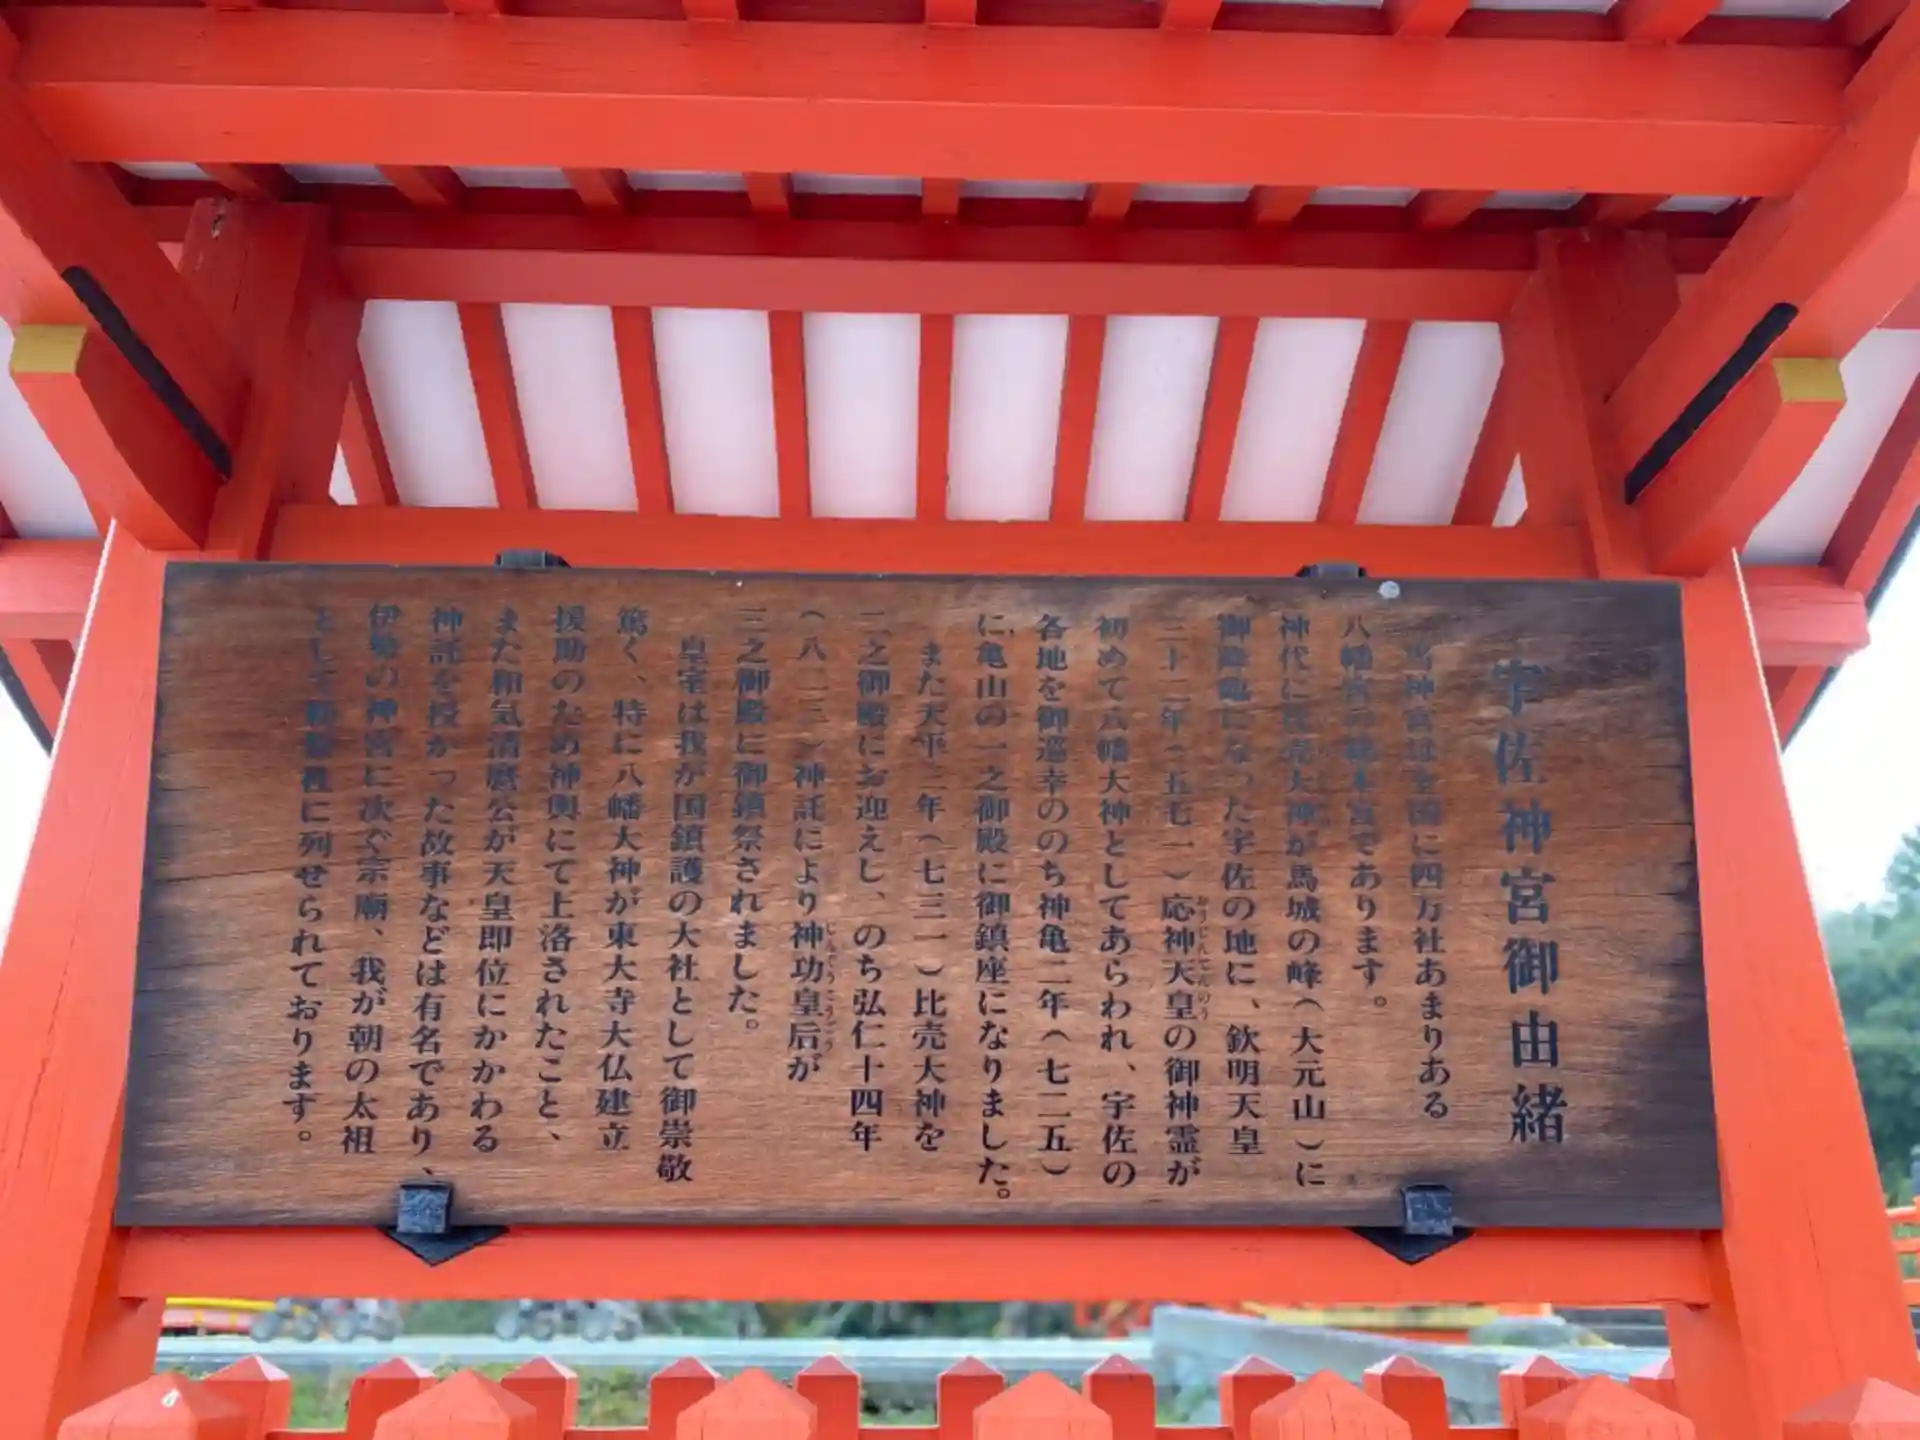 宇佐神宮御由緒
当神宮は全国に四万社あまりある
八幡宮の総本宮であります。
神代に比売大神が馬城の峰（大元山）に
御降臨になった宇佐の地に、欽明天皇
三十二年（五七一）応神天皇の御神霊が
おうじんてんのう
初めて八幡大神としてあらわれ、宇佐の
各地を御巡幸ののち神亀二年（七二五）
に亀山の一之御殿に御鎮座になりました。
また天平三年（七三一）比売大神を
二之御殿にお迎えし、のち弘仁十四年
（八二三）神託により神功皇后が
じんぐうこうごう
三之御殿に御鎮祭されました。
皇室は我が国鎮護の大社として御崇敬
篤く、特に八幡大神が東大寺大仏建立
援助のため神輿にて上洛されたこと、
また和気清麿公が天皇即位にかかわる
神託を授かった故事などは有名であり、
伊勢の神宮に次ぐ宗廟、我が朝の太祖
として勅祭社に列せられております。